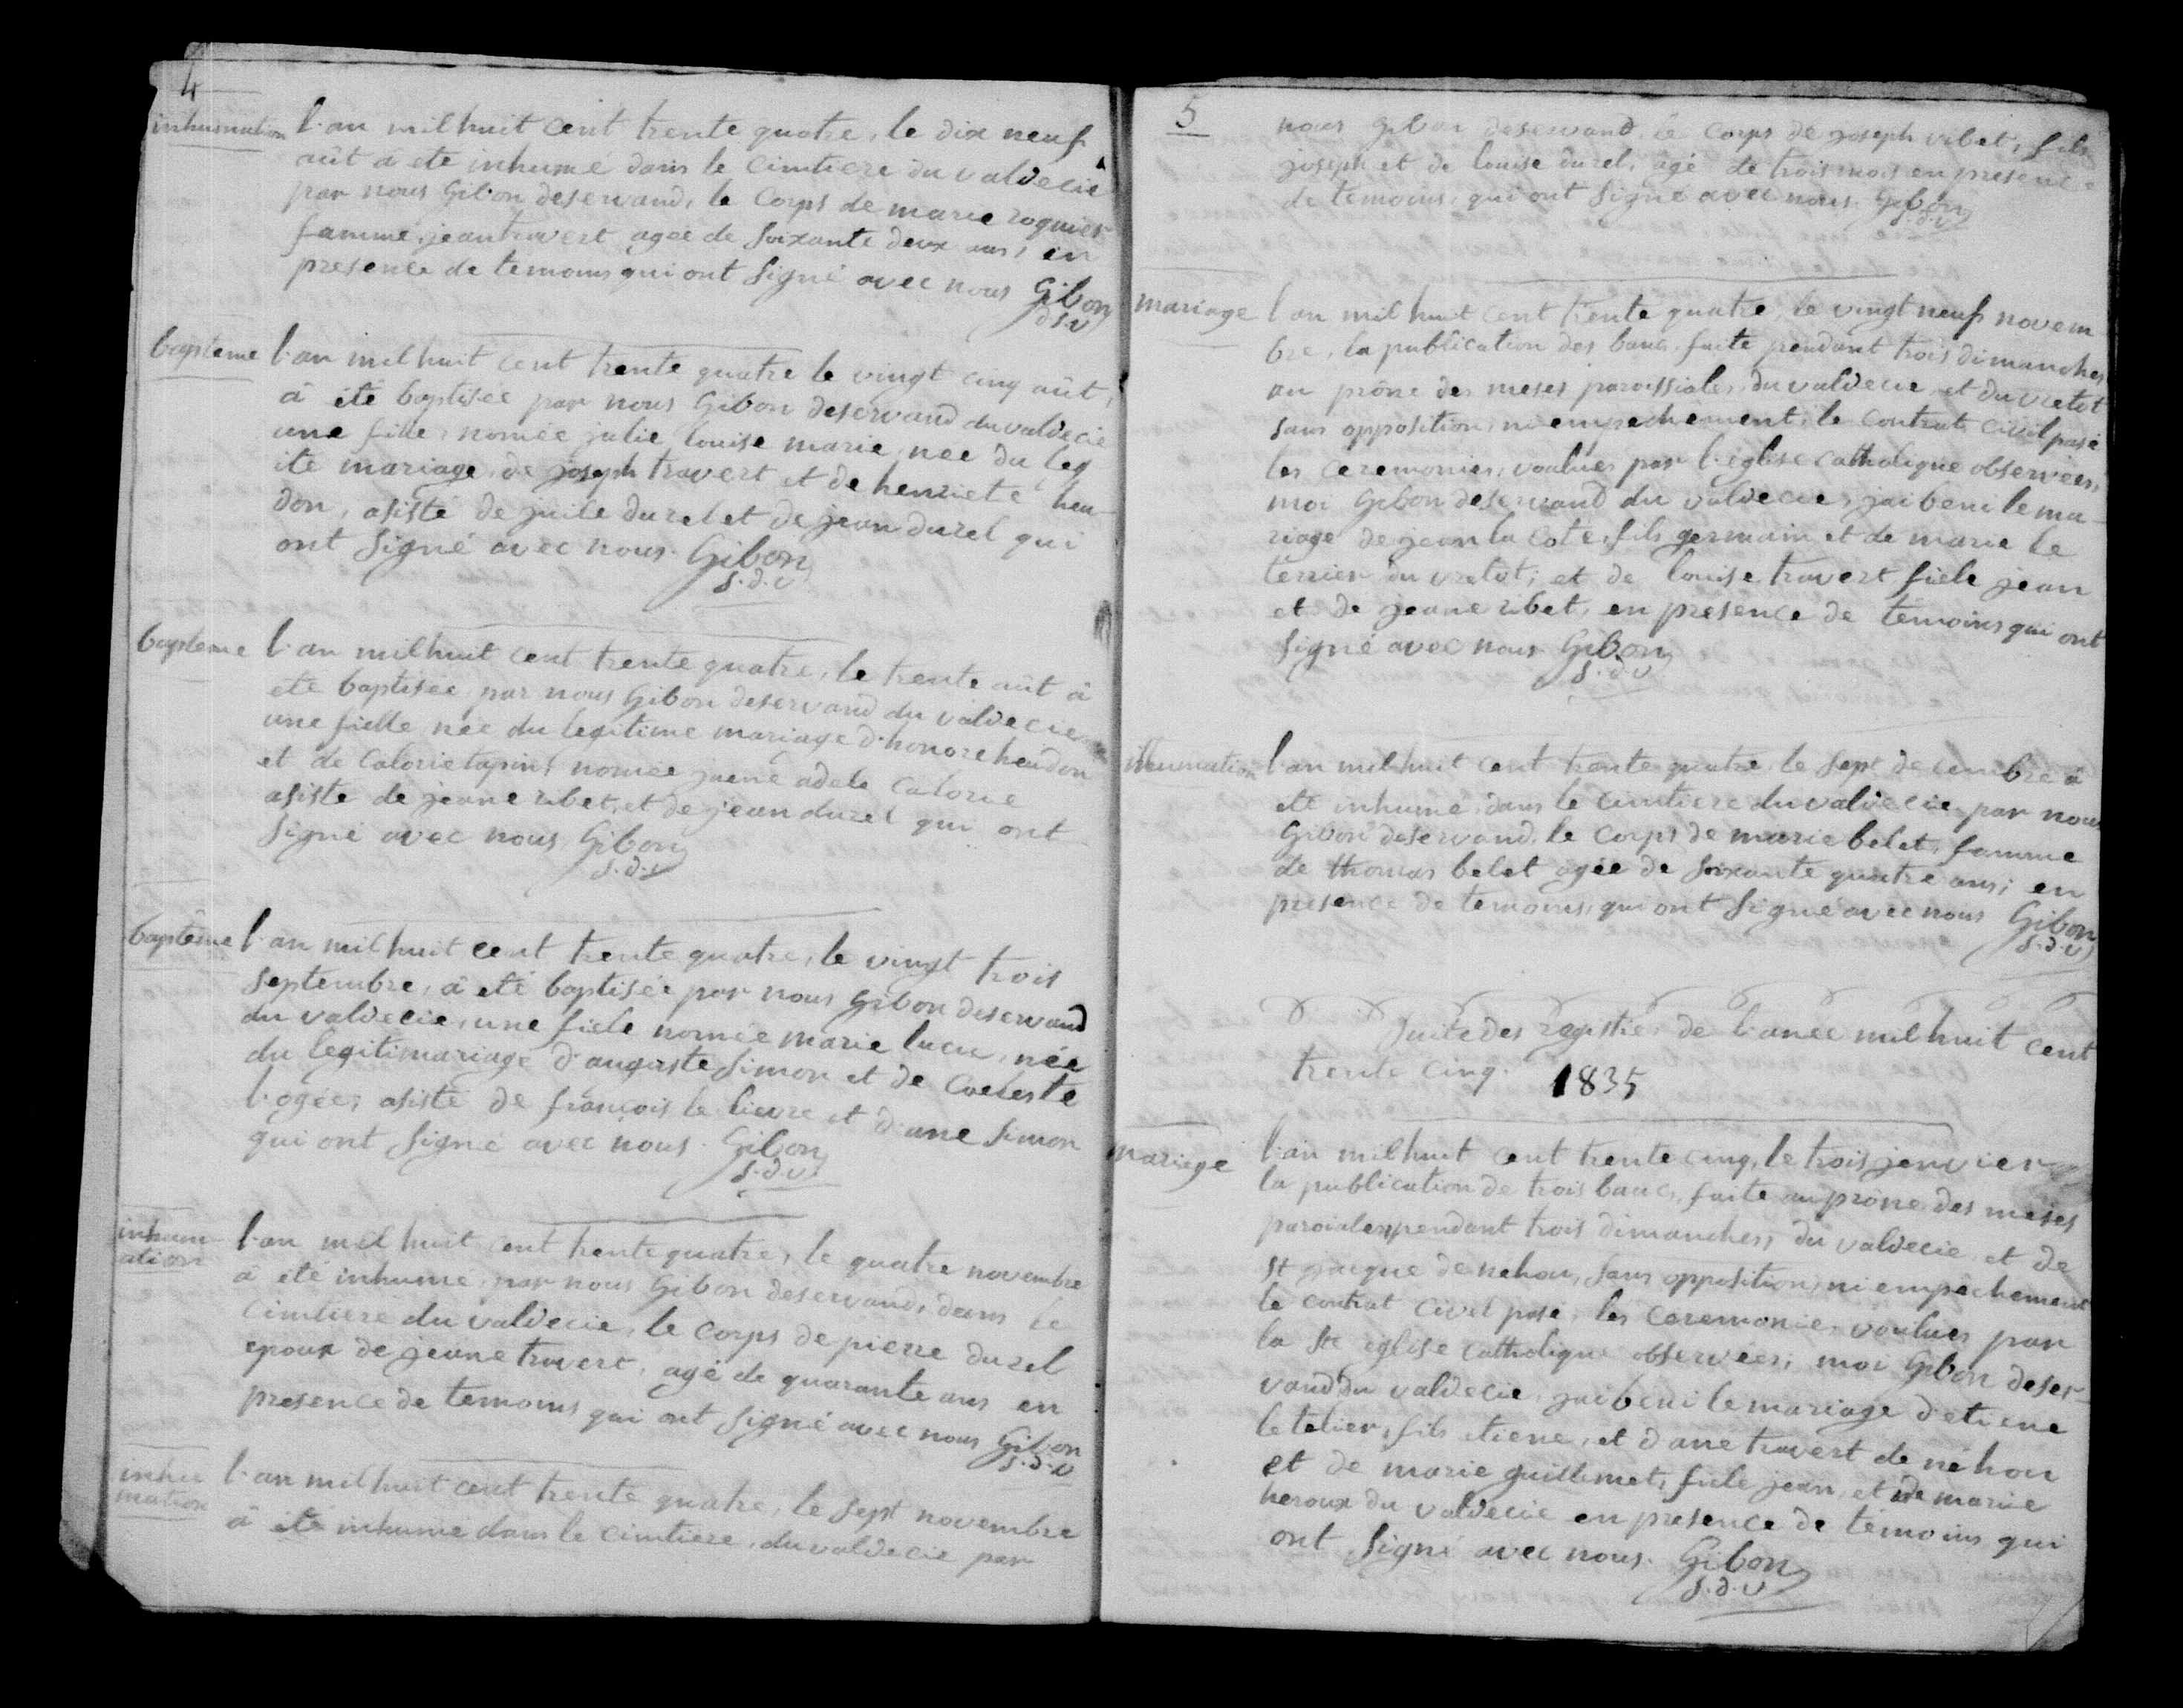 4
inhumation
l'an mil huit cent trente quatre, le dix neuf
aût â été inhumé dans le Cimtiere du valdecie
par nous Gibon deservand, le Corps de marie roquier
famme, jean travert agée de soixante deux ans, en
presence de temoins qui ont signé avec nous Gibon
d s.v
bapteme
l'an mil huit cent trente quatre le vingt cinq aût,
â été baptisée par nous Gibon deservand du valdecie
une fille, nomée julie louise marie, née du leg
ite mariage, de joseph travert et de henriete heu-
don, asisté de julie durel et de jean durel qui
ont signé avec nous. Gibon
s.d.v
bapteme
l'an mil huit cent trente quatre, le trente aût â
eté baptisée par nous Gibon deservand du valdecie
une fielle née du legitime mariage d'honore heudon
et de Calorie tapin, nomée jaene adele Calorie
asisté de jeane ribet, et de jean durel qui ont
signé avec nous Gibon
s.d.v
baptême
l'an mil huit cent trente quatre, le vingt trois
septembre, â eté baptisée par nous Gibon deservand
du valdecie, une fiele nomée marie lucie, née
du legitimariage d'auguste simon et de Coeleste
l'ogée, asisté de francois le lievre et d'ane simon
qui ont signé avec nous. Gibon
s.d.v
inhum-
ation
l'an mil huit cent trente quatre, le quatre novembre
â été inhumé par nous Gibon deservand, dans le
Cimtiere du valdecie, le Corps de pierre durel
epoux de jeane travert, agé de quarante ans en
presence de temoins qui ont signé avec nous Gibon
s.d.v
inhu
mation
l'an mil huit cent trente quatre, le sept novembre
â été inhumé dans le Cimtiere, du valdecie par
5
nous Gibon deservand, le Corps de joseph ribet, fils
joseph et de louise durel, agé de trois mois en presence
de temoins, qui ont signé avec nous. Gibon
s.d.v
mariage
l'an mil huit cent trente quatre, le vingt neuf novem
bre, la publication des banc, faite pendant trois dimanches
au prône des meses paroissiales, du valdecie et du vretot
sans opposition, ni empechement, le contrat civil pasé
les ceremonies, voulues par l'église catholique observées,
moi Gibon deservand du valdecie, jai beni le ma-
riage de jean la Cote, fils germain et de marie le
terrier du vretot, et de louise travert fiele jean
et de jeane ribet, en présence de témoins qui ont
signé avec nous Gibon
s.d.v
inhumation
l'an mil huit cent trente quatre, le sept decembre â
eté inhumé dans le Cimtiere du valdecie par nous
Gibon deservand, le Corps de marie belet, famme
de thomas belet agée de soixante quatre ans, en
presence de temoins, qui ont signé avec nous Gibon
s.d.v
Suite des registres de l'anée mil huit cent
trente Cinq. 1835
mariage
l'an mil huit cent trente cinq, le trois jenvier
la publication de trois bancs, faite au prône des meses
paroiales, pendant trois dimanches, du valdecie et de
st jacque de nehou, sans opposition, ni empechement
le contrat civil pasé, les ceremonies voulues par
la ste eglise catholique observées, moi Gibon deser-
vand du valdecie, jai beni le mariage d'etiene
le telier, fils etiene, et d'ane travert de néhou
et de marie guillemet, fiele jean, et de marie
heroux du valdecie en presence de temoins qui
ont signé avec nous. Gibon
s.d.v